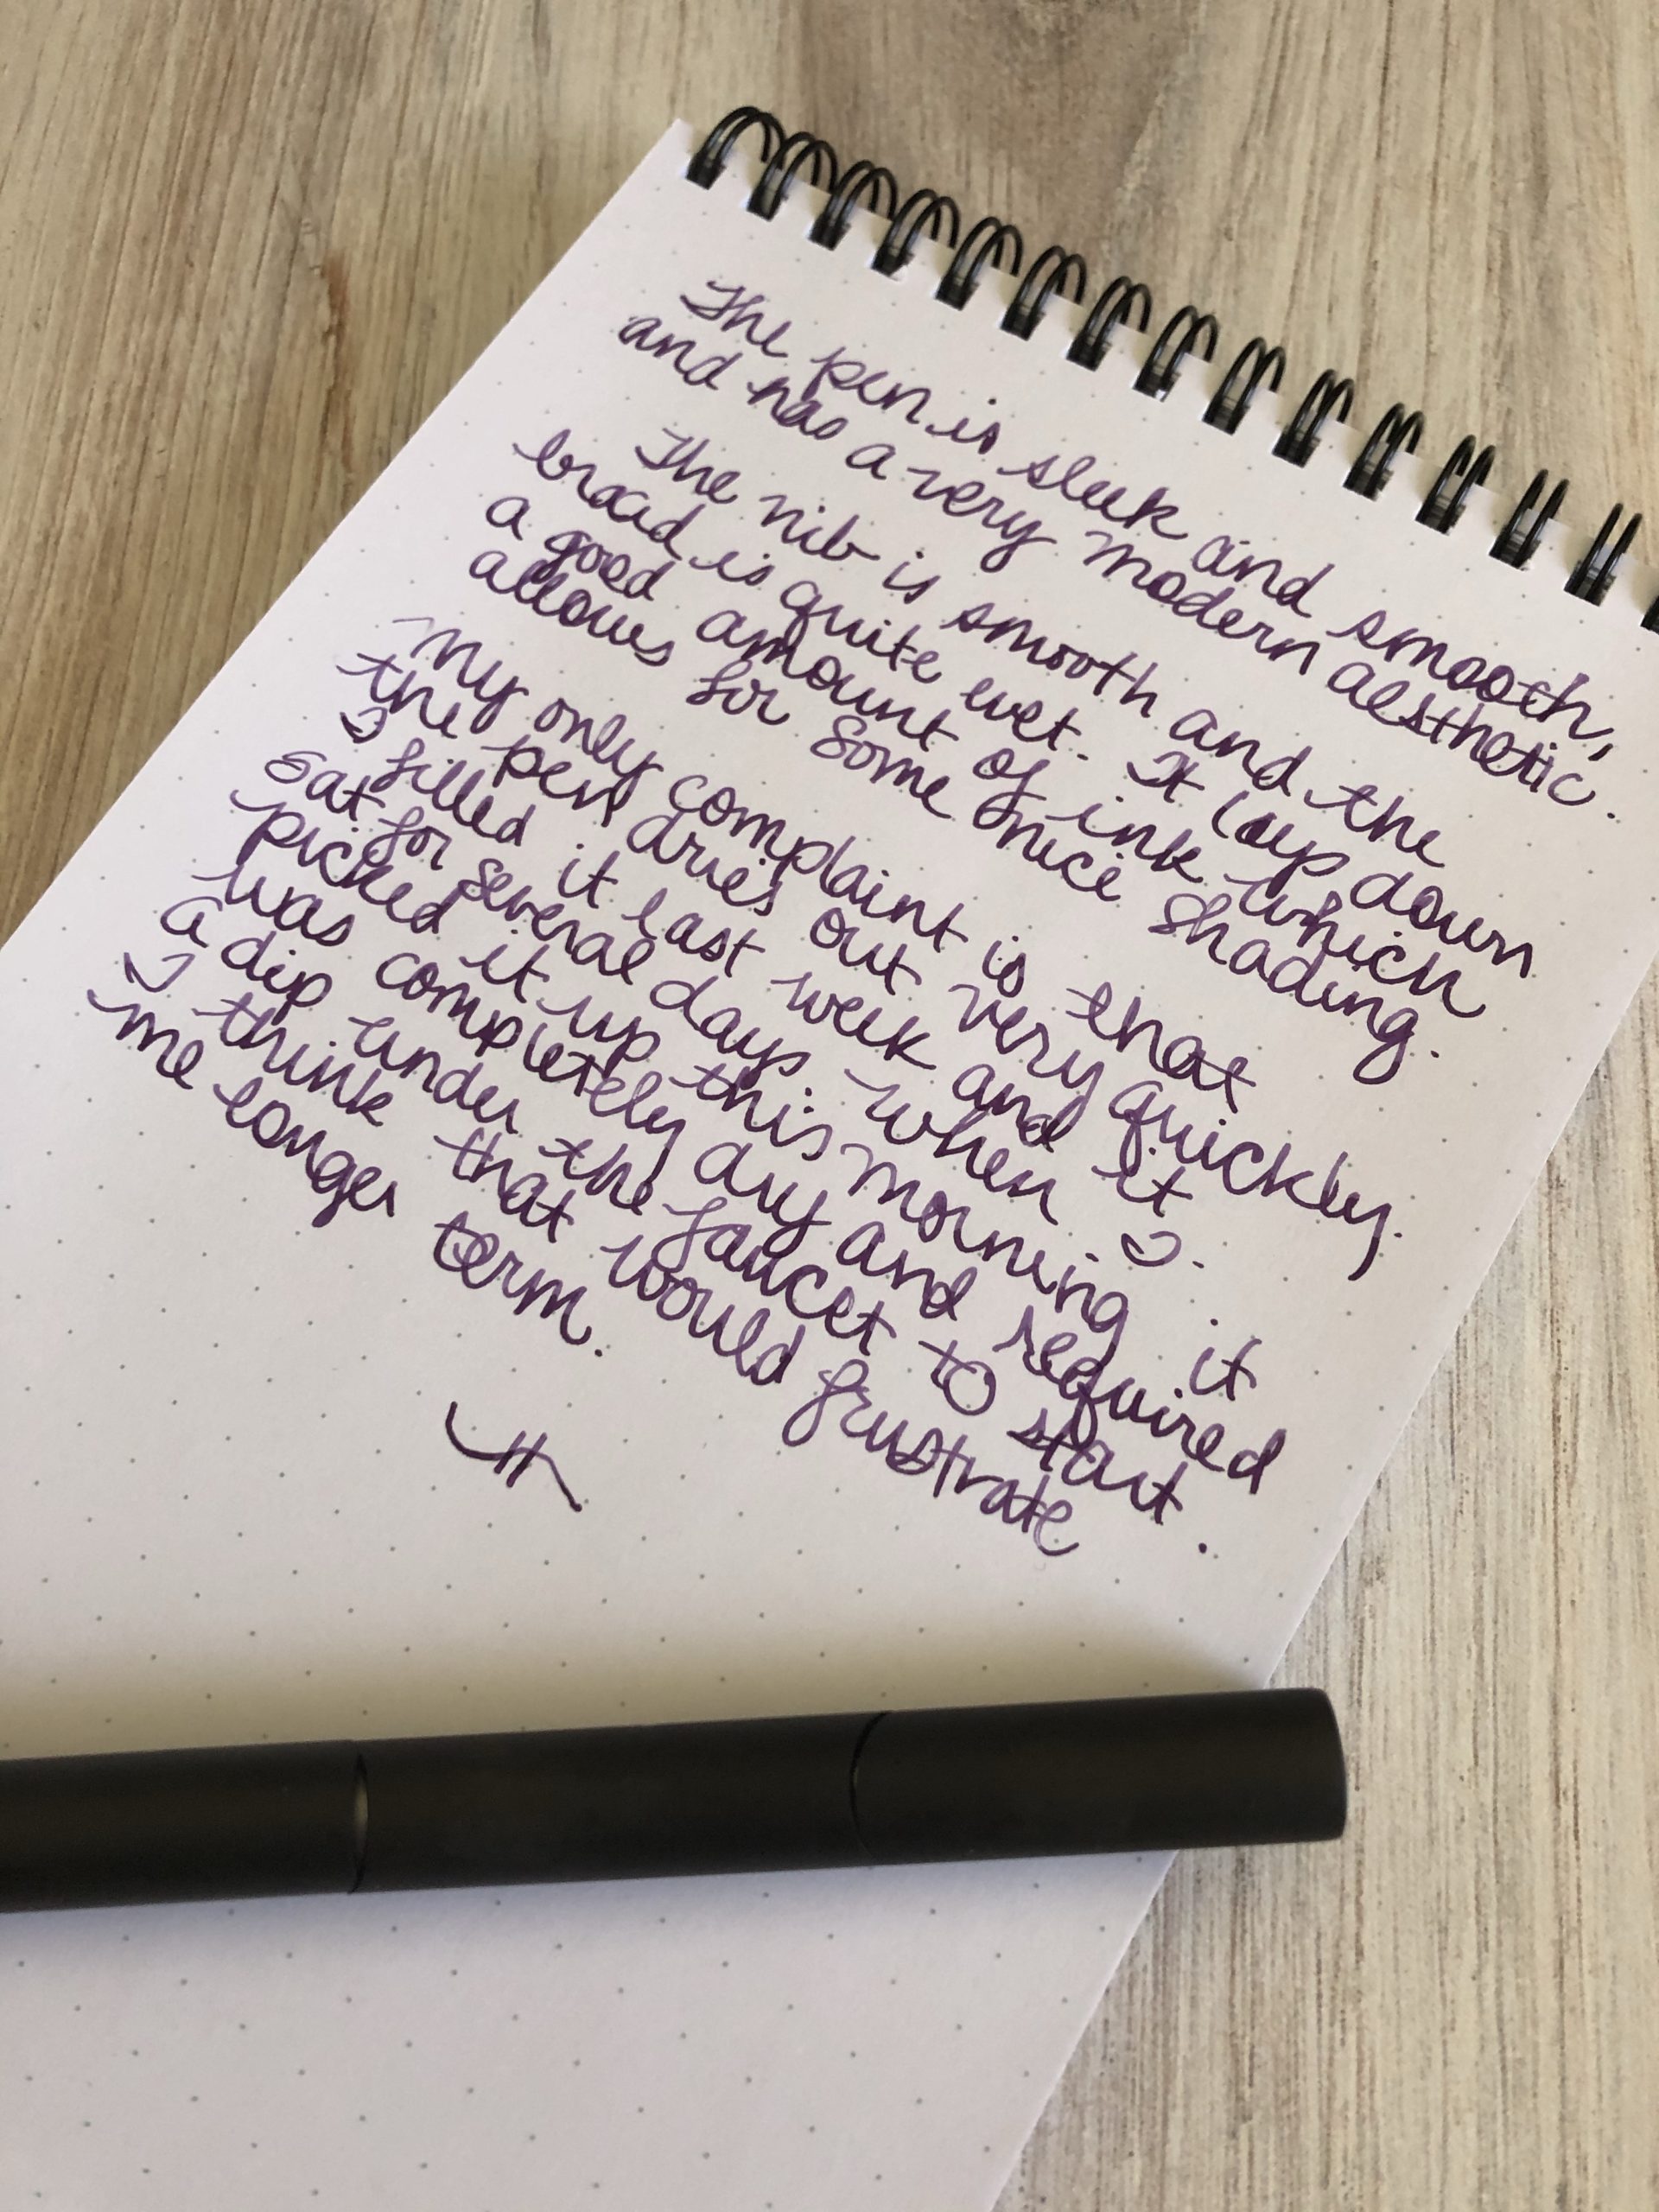 The pen is sleek and smooth,
and has a very modern aesthetic.
The nib is smooth and the
broad is quite wet. It lays down
a good amount of ink which
allows for some nice shading.
My only complaint is that
the pen dries out very quickly.
I filled it last week and it
sat for several days. When I
picked it up this morning it
was completely dry and required
a dip under the faucet to start.
I think that would frustrate
me longer term.